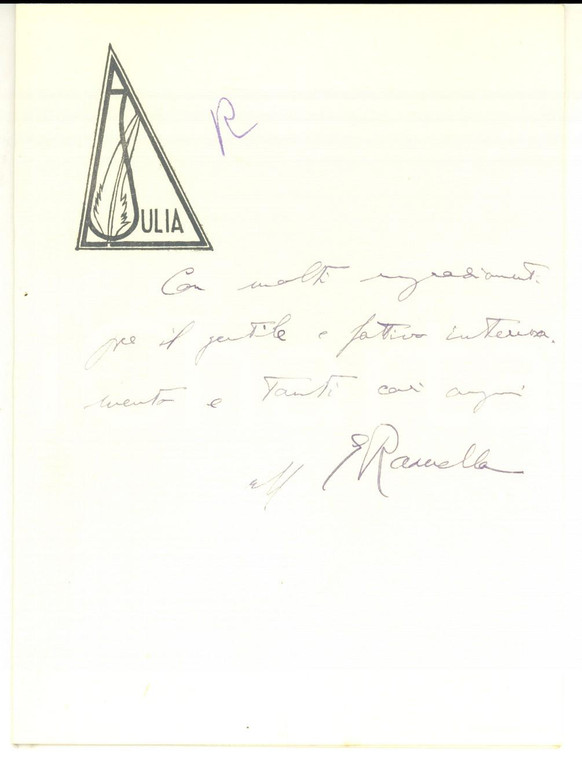 JULIA
R
Con molti ringraziamenti
per il gentile e fattivo interessa.
mento e tanti cari auguri
E Ramella